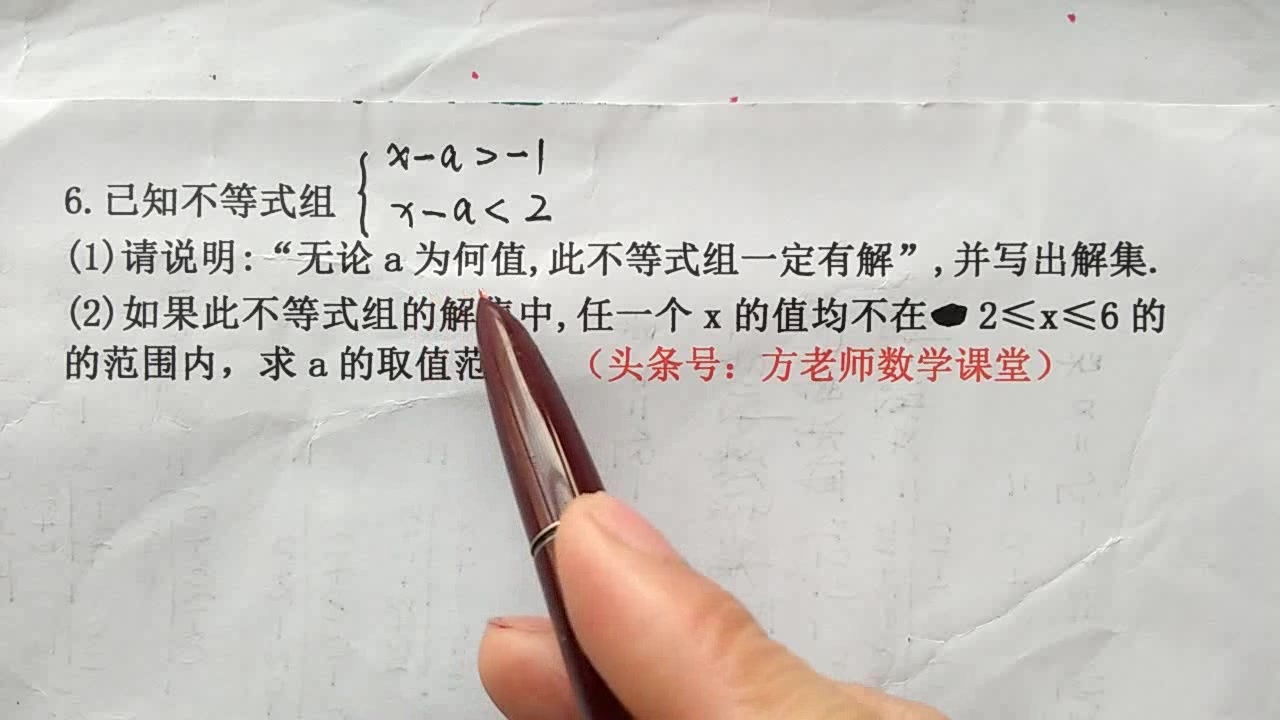 x-a>-1
6.已知不等式组{
x-a<2
(1)请说明:“无论a为何值,此不等式组一定有解”,并写出解集.
(2)如果此不等式组的解 中,任一个x的值均不在 2≤x≤6的
的范围内，求a的取值范 （头条号：方老师数学课堂）